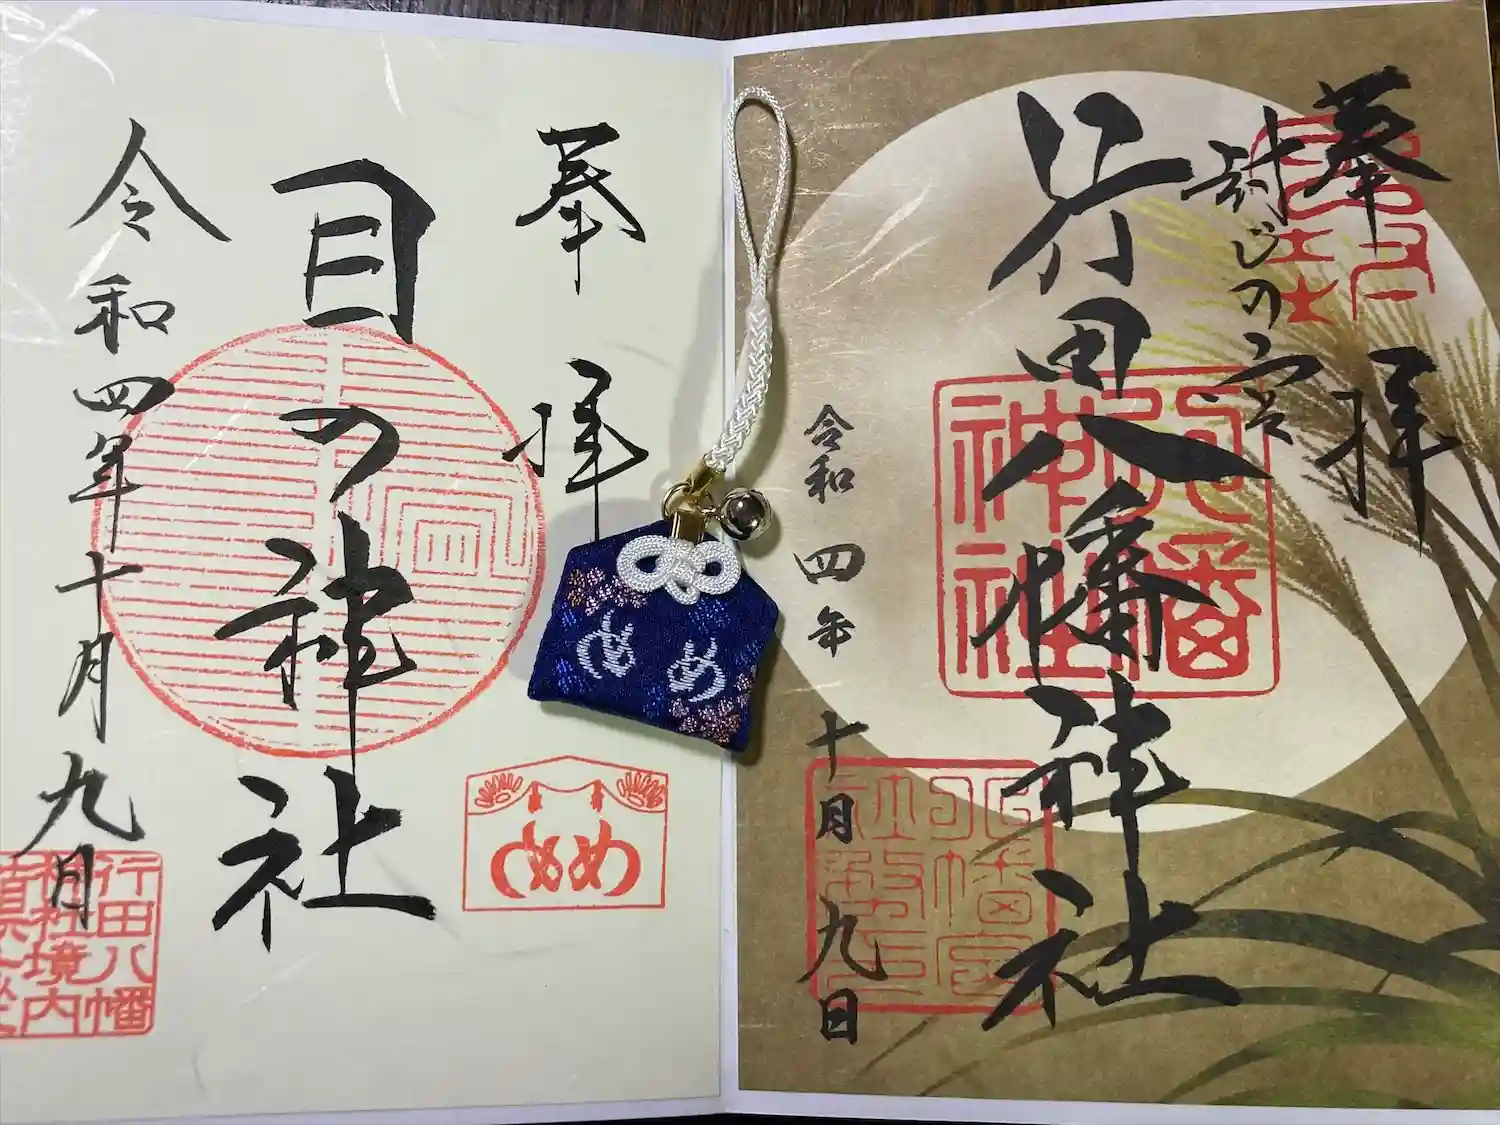 奉拝
封じの宮
行田八幡神社
八幡
神社
令和四年十月九日
め
奉拝
目の神社
め
令和四年十月九日
行田八幡
神社境内